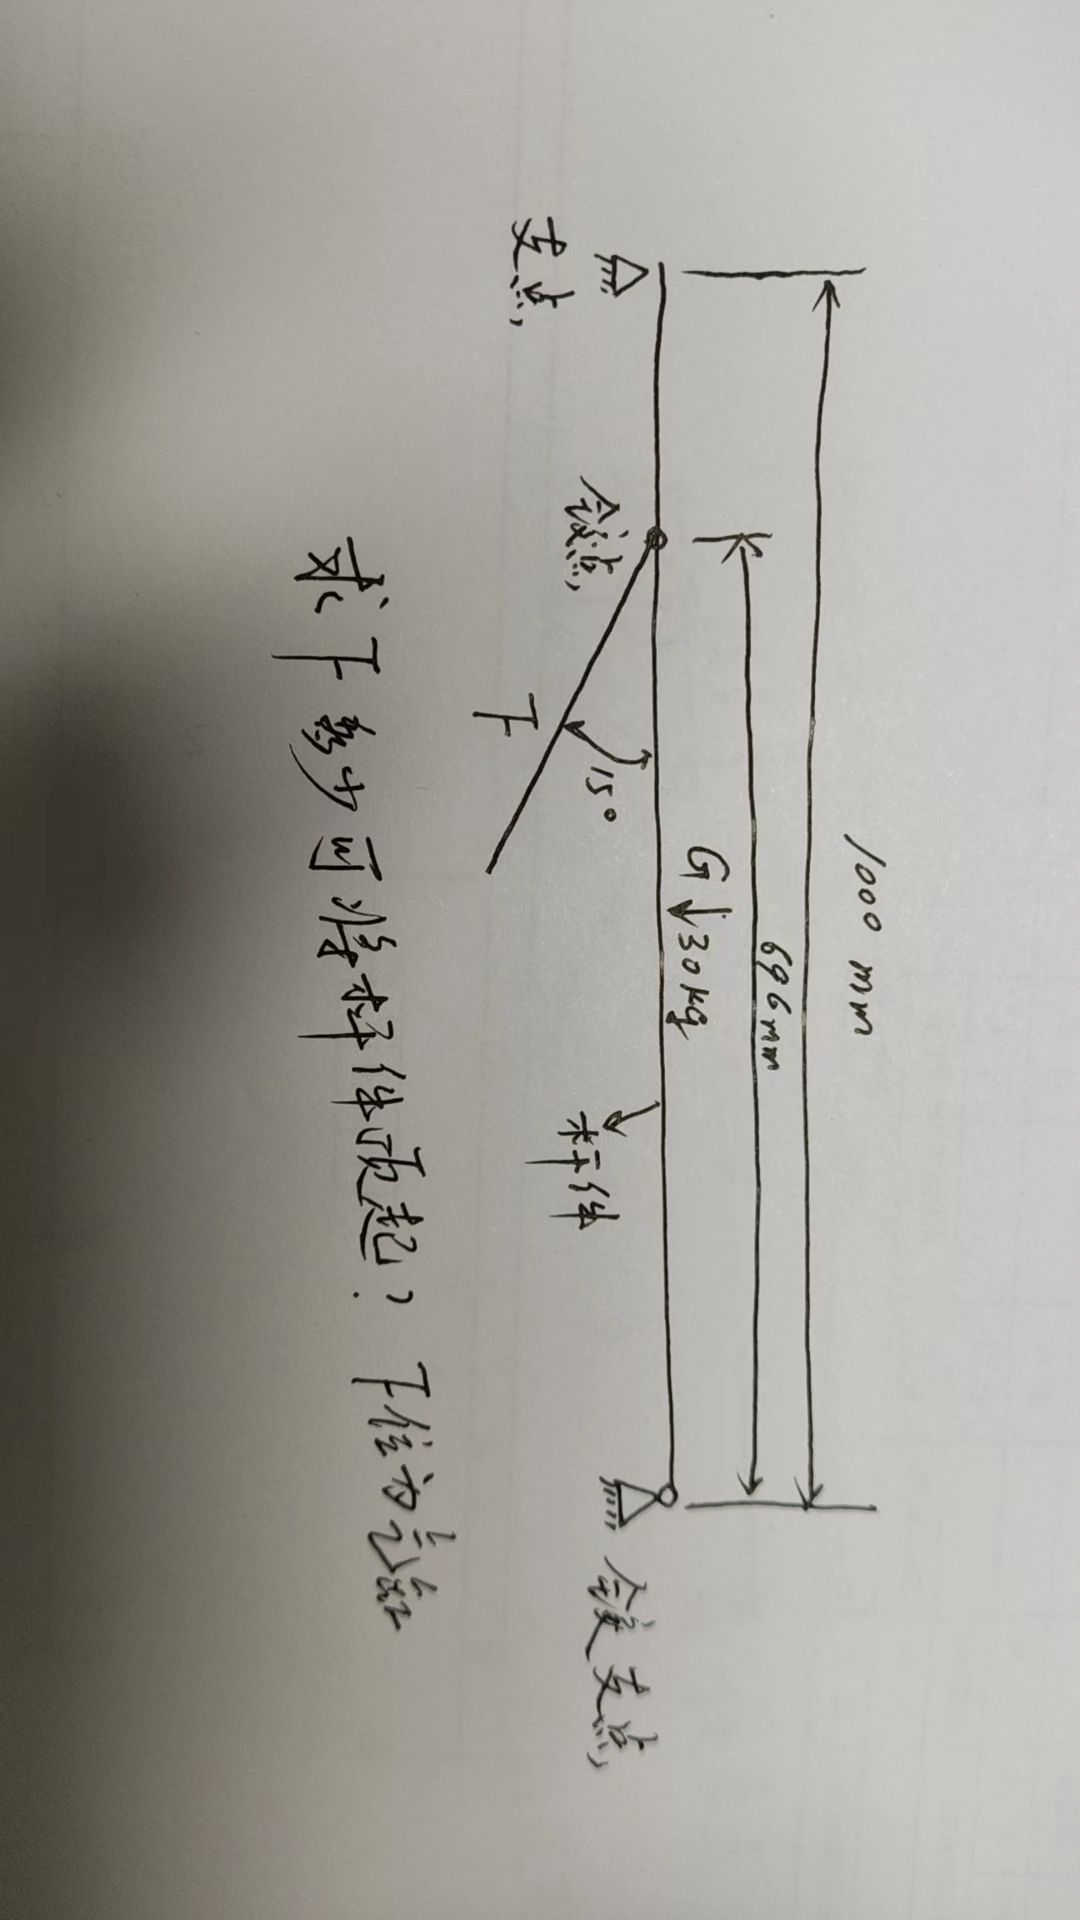 1000 mm
696mm
G↓30kg
15°
支点
铰点
F
杆件
铰支点
求F多少可将杆件顶起? F位为